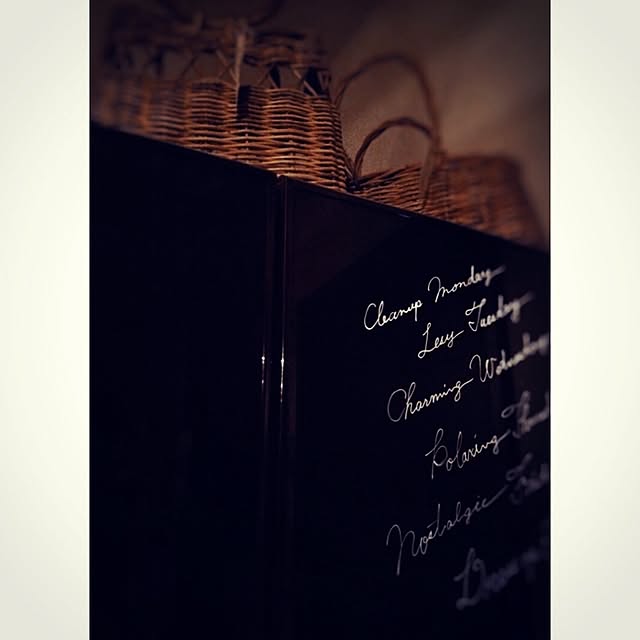 Cleanup Monday
Levy Tuesday
Charming Wednesday
Relaxing
Nostalgic